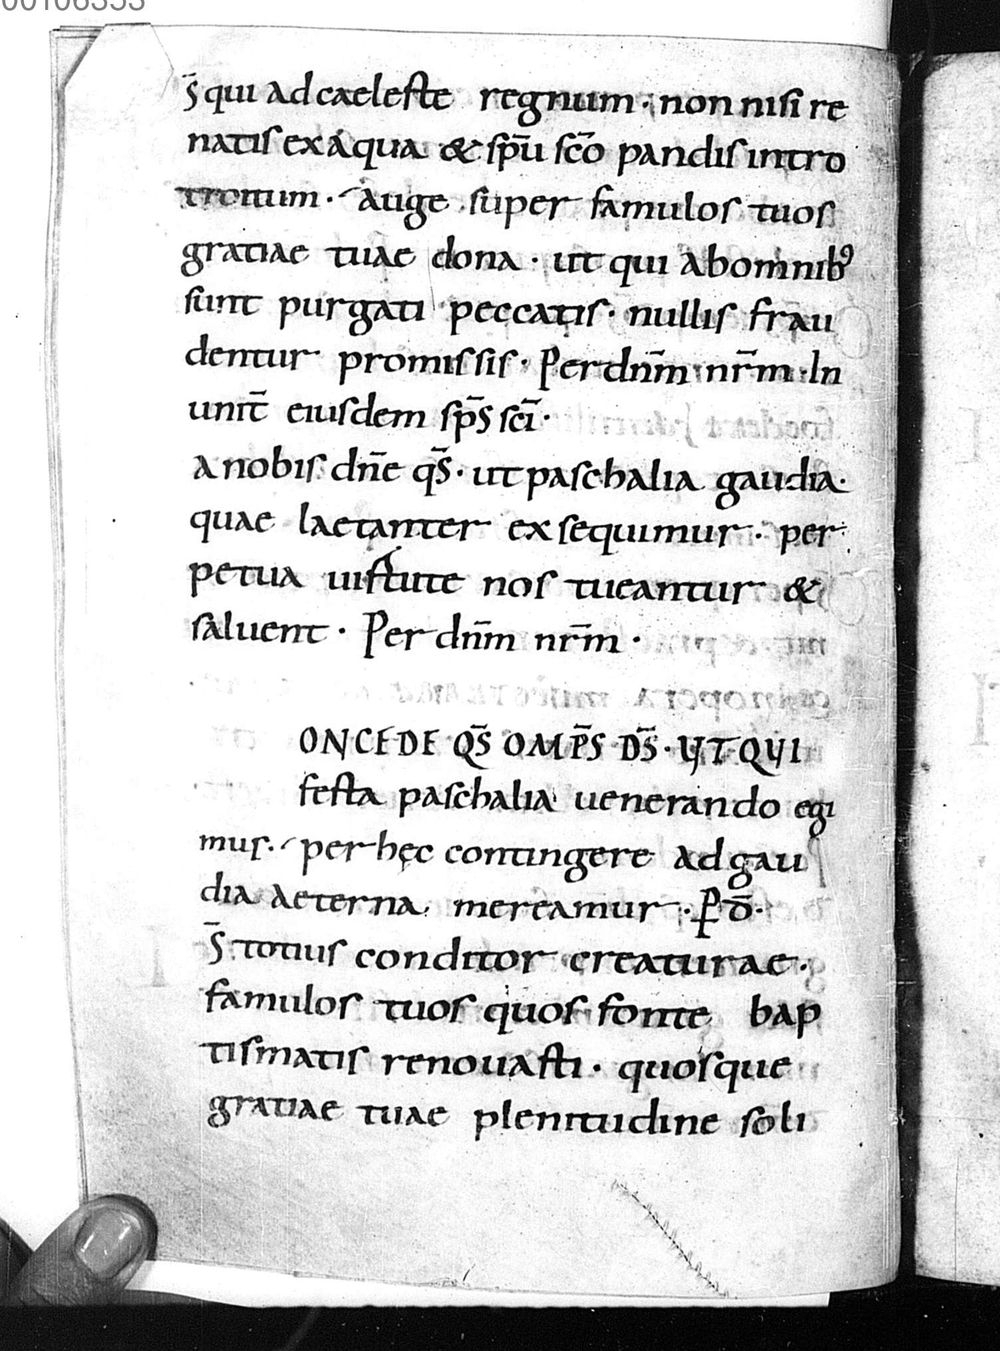 00106353
s̄ qui ad caeleste regnum · non nisi re
natis ex aqua & sp̄u sc̄o pandis intro
troitum · auge super famulos tuos
gratiae tuae dona · ut qui ab omnibꝰ
sunt purgati peccatis · nullis frau
dentur promissis · Per dn̄m nr̄m · In
unit̄ eiusdem sp̄s sc̄i ·
a nobis dn̄e qs̄ · ut paschalia gaudia ·
quae laetanter exsequimur · per
petua uirtute nos tueantur &
saluent · Per dn̄m nr̄m ·
ONCEDE QS̄ OMP̄S DS̄ · UT QUI
festa paschalia uenerando egi
mus · per hęc contingere ad gau
dia aeterna mereamur · P̱ D̄ ·
s̄ totius conditor creaturae ·
famulos tuos quos fonte bap
tismatis renouasti · quosque
gratiae tuae plenitudine soli